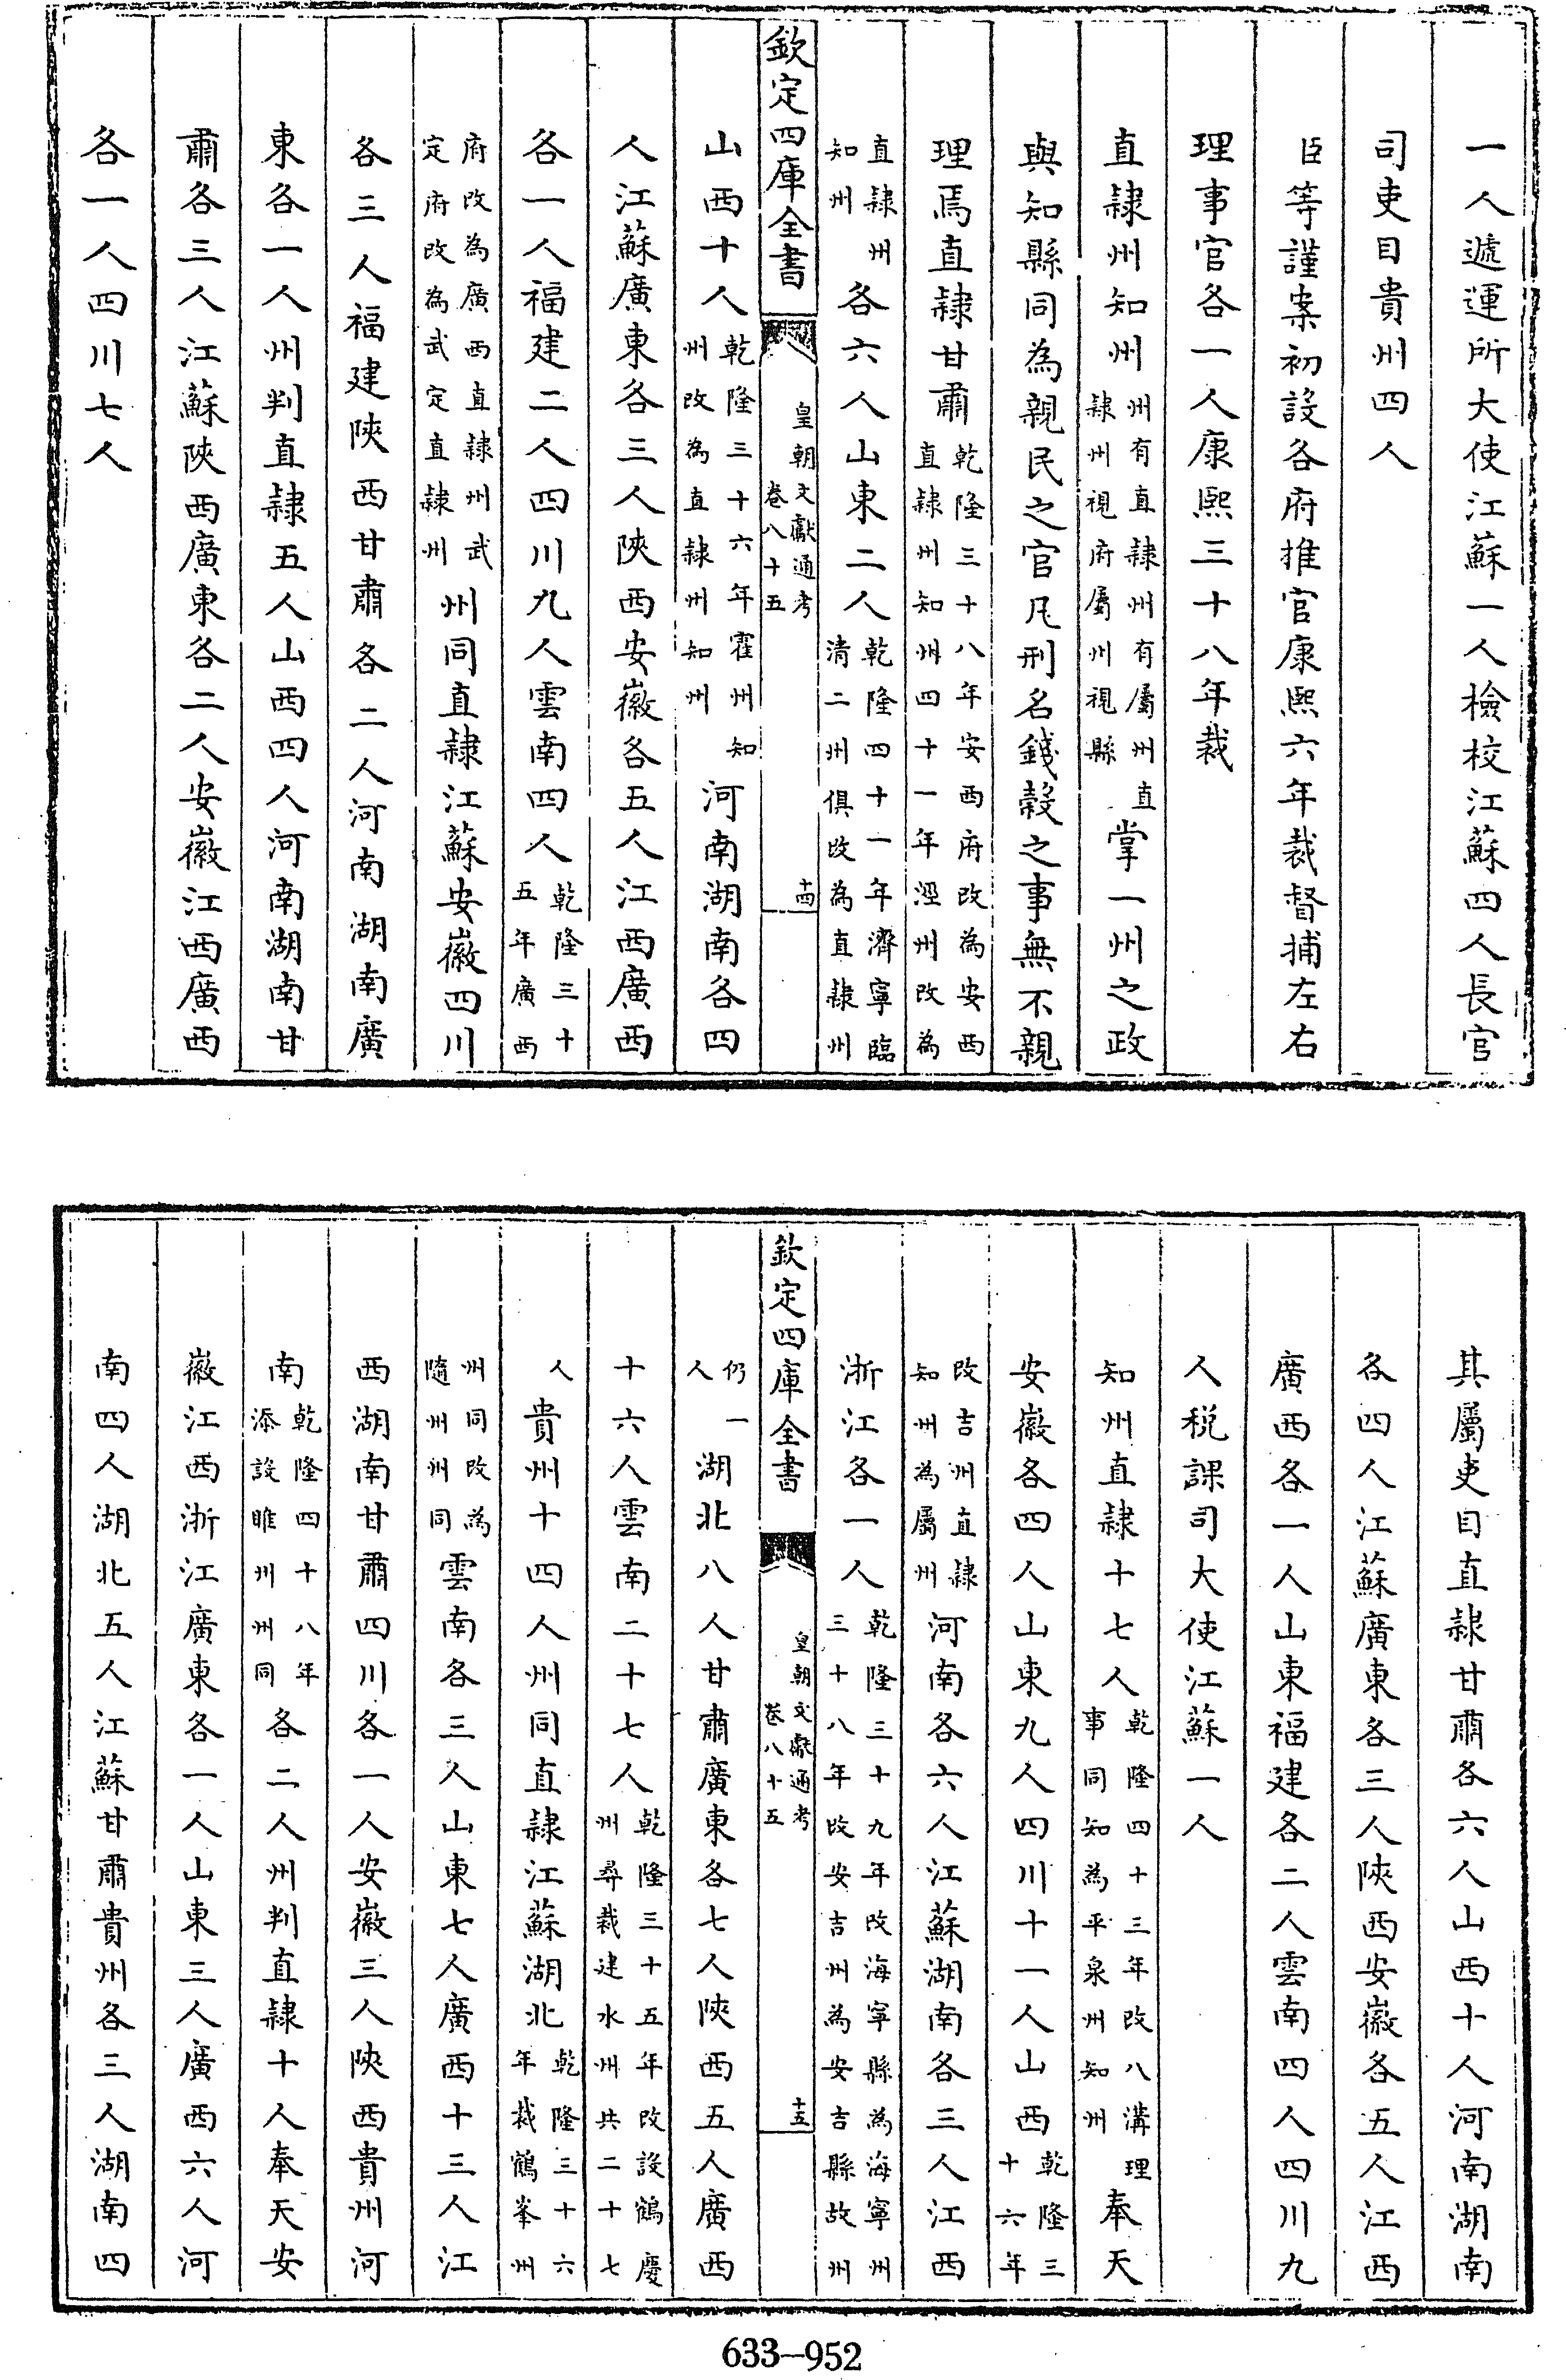 一人遞運所大使江蘇一人檢校江蘇四人長官
司吏目貴州四人
臣等謹案初設各府推官康熙六年裁督捕左右
理事官各一人康熙三十八年裁
直隷州知州州有直隷州有屬州直隷州視府屬州視縣掌一州之政
與知縣同為親民之官凡刑名錢穀之事無不親
理焉直隷甘肅乾隆三十八年安西府改為安西直隷州知州四十一年涇州改為
直隷州知州各六人山東二人乾隆四十一年濟寧臨清二州俱改為直隷州
欽定四庫全書 皇朝文獻通考卷八十五 十四
山西十人乾隆三十六年霍州知州改為直隷州知州河南湖南各四
人江蘇廣東各三人陝西安徽各五人江西廣西
各一人福建二人四川九人雲南四人乾隆三十五年廣西
府改為廣西直隷州武定府改為武定直隷州州同直隷江蘇安徽四川
各三人福建陝西甘肅各二人河南湖南廣
東各一人州判直隷五人山西四人河南湖南甘
肅各三人江蘇陝西廣東各二人安徽江西廣西
各一人四川七人
其屬吏目直隷甘肅各六人山西十人河南湖南
各四人江蘇廣東各三人陝西安徽各五人江西
廣西各一人山東福建各二人雲南四人四川九
人税課司大使江蘇一人
知州直隷十七人乾隆四十三年改八溝理事同知為平泉州知州奉天
安徽各四人山東九人四川十一人山西乾隆三十六年
改吉州直隷知州為屬州河南各六人江蘇湖南各三人江西
浙江各一人乾隆三十九年改海寧縣為海寧州三十八年改安吉州為安吉縣故州
欽定四庫全書 皇朝文獻通考卷八十五 十五
仍一人湖北八人甘肅廣東各七人陝西五人廣西
十六人雲南二十七人乾隆三十五年改設鶴慶州尋裁建水州共二十七
人貴州十四人州同直隷江蘇湖北乾隆三十六年裁鶴峯州
州同改為隨州州同雲南各三人山東七人廣西十三人江
西湖南甘肅四川各一人安徽三人陝西貴州河
南乾隆四十八年添設睢州州同各二人州判直隷十人奉天安
徽江西浙江廣東各一人山東三人廣西六人河
南四人湖北五人江蘇甘肅貴州各三人湖南四
633-952